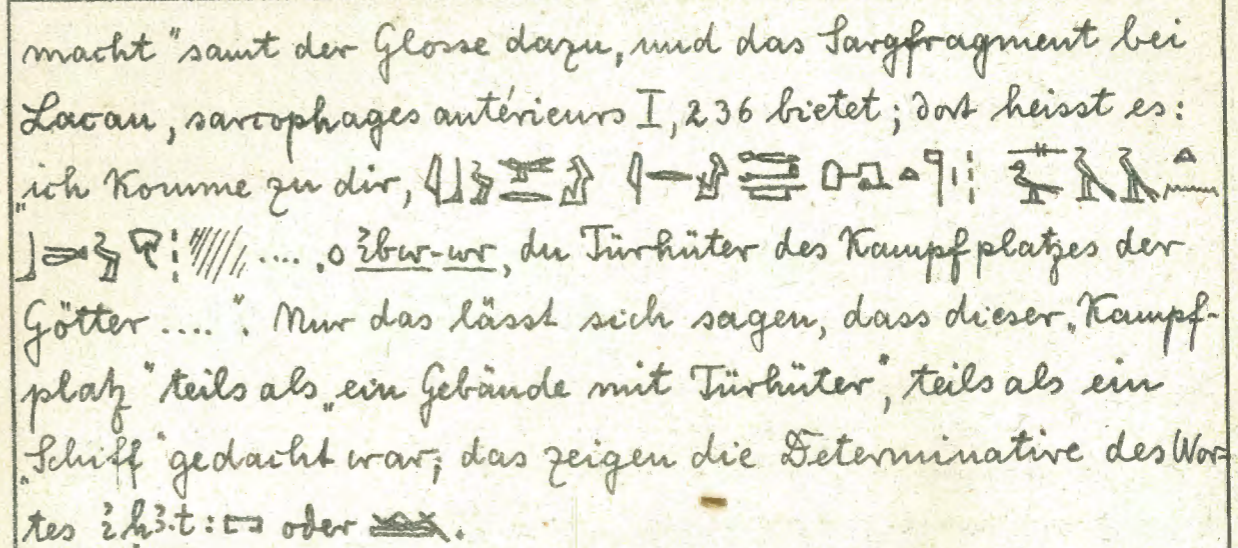 macht" samt der Glosse dazu, und das Sargfragment bei
Lacau, sarcophages antérieurs I, 236 bietet; dort heisst es:
„ich komme zu dir,
.... „o ꜣbw-wr, du Türhüter des Kampfplatzes der
Götter ....". Nur das lässt sich sagen, dass dieser „Kampf-
platz" teils als „ein Gebäude mit Türhüter", teils als ein
„Schiff" gedacht war; das zeigen die Determinative des Wor-
tes : oder .